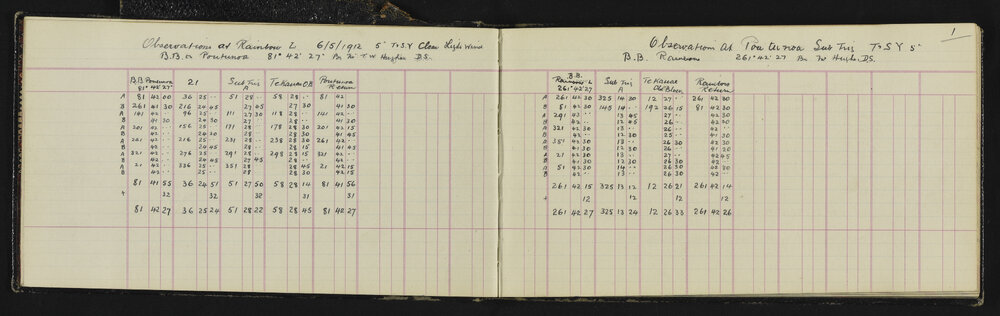 Observations at Rainbow L 6/5/1912 5" T&S.Y Clear Light Wind
B.B. on Poutunoa 81° 42' 27" Bn T.W Hughes D.S.
B.B. Poutunoa 21 Sub Trig Te Kauae O.B Poutunoa
81° 42' 27" A Return
A 81 42 00 36 25 ·· 51 28 ·· 58 28 ·· 81 42
B 261 41 30 216 24 45 27 45 27 30 41 30
A 141 42 ·· 96 25 ·· 111 27 30 118 28 ·· 141 42 ··
B 41 30 24 30 27 ·· 28 ·· 41 30
A 201 42 ·· 156 25 ·· 171 28 ·· 178 28 30 201 42 15
B 42 ·· 24 30 28 ·· 28 30 41 45
A 261 42 ·· 216 25 ·· 231 28 ·· 238 28 30 261 42 ··
B 42 ·· 24 45 28 ·· 28 15 41 45
A 321 42 ·· 276 25 ·· 291 28 ·· 298 28 15 321 42 ··
B 42 ·· 24 45 27 45 28 ·· 42 ··
A 21 42 ·· 336 25 ·· 351 28 ·· 28 45 21 42 15
B 42 ·· 25 ·· 28 ·· 28 30 42 15
81 41 55 36 24 51 51 27 50 58 28 14 81 41 56
+ 32 32 32 31 31
81 42 27 36 25 24 51 28 22 58 28 45 81 42 27
1
Observations At Poutunoa Sub Trig T&S Y 5"
B.B. Rainbow 261° 42' 27" Bn Hughes D.S.
B.B.
Rainbow L Sub Trig Te Kauae Rainbow
261° 42' 27 A Old Bloom Return
A 261 42 30 325 14 30 12 27 ·· 261 42 30
B 81 42 30 145 14 ·· 192 26 15 81 42 30
A 291 43 ·· 13 45 27 ·· 42 30
B 42 ·· 12 45 26 ·· 42 00
A 321 42 30 13 ·· 26 ·· 42 ··
B 42 ·· 12 30 25 ·· 41 30
A 351 42 30 13 ·· 26 30 42 30
B 41 30 12 30 26 ·· 42 ··
A 21 42 30 13 ·· 27 ·· 42 45
B 41 30 12 30 26 30 42 ··
A 51 42 30 14 ·· 26 30 42 30
B 42 00 13 ·· 26 30 42 ··
261 42 15 325 13 12 12 26 21 261 42 14
+ 12 12 12 12
261 42 27 325 13 24 12 26 33 261 42 26